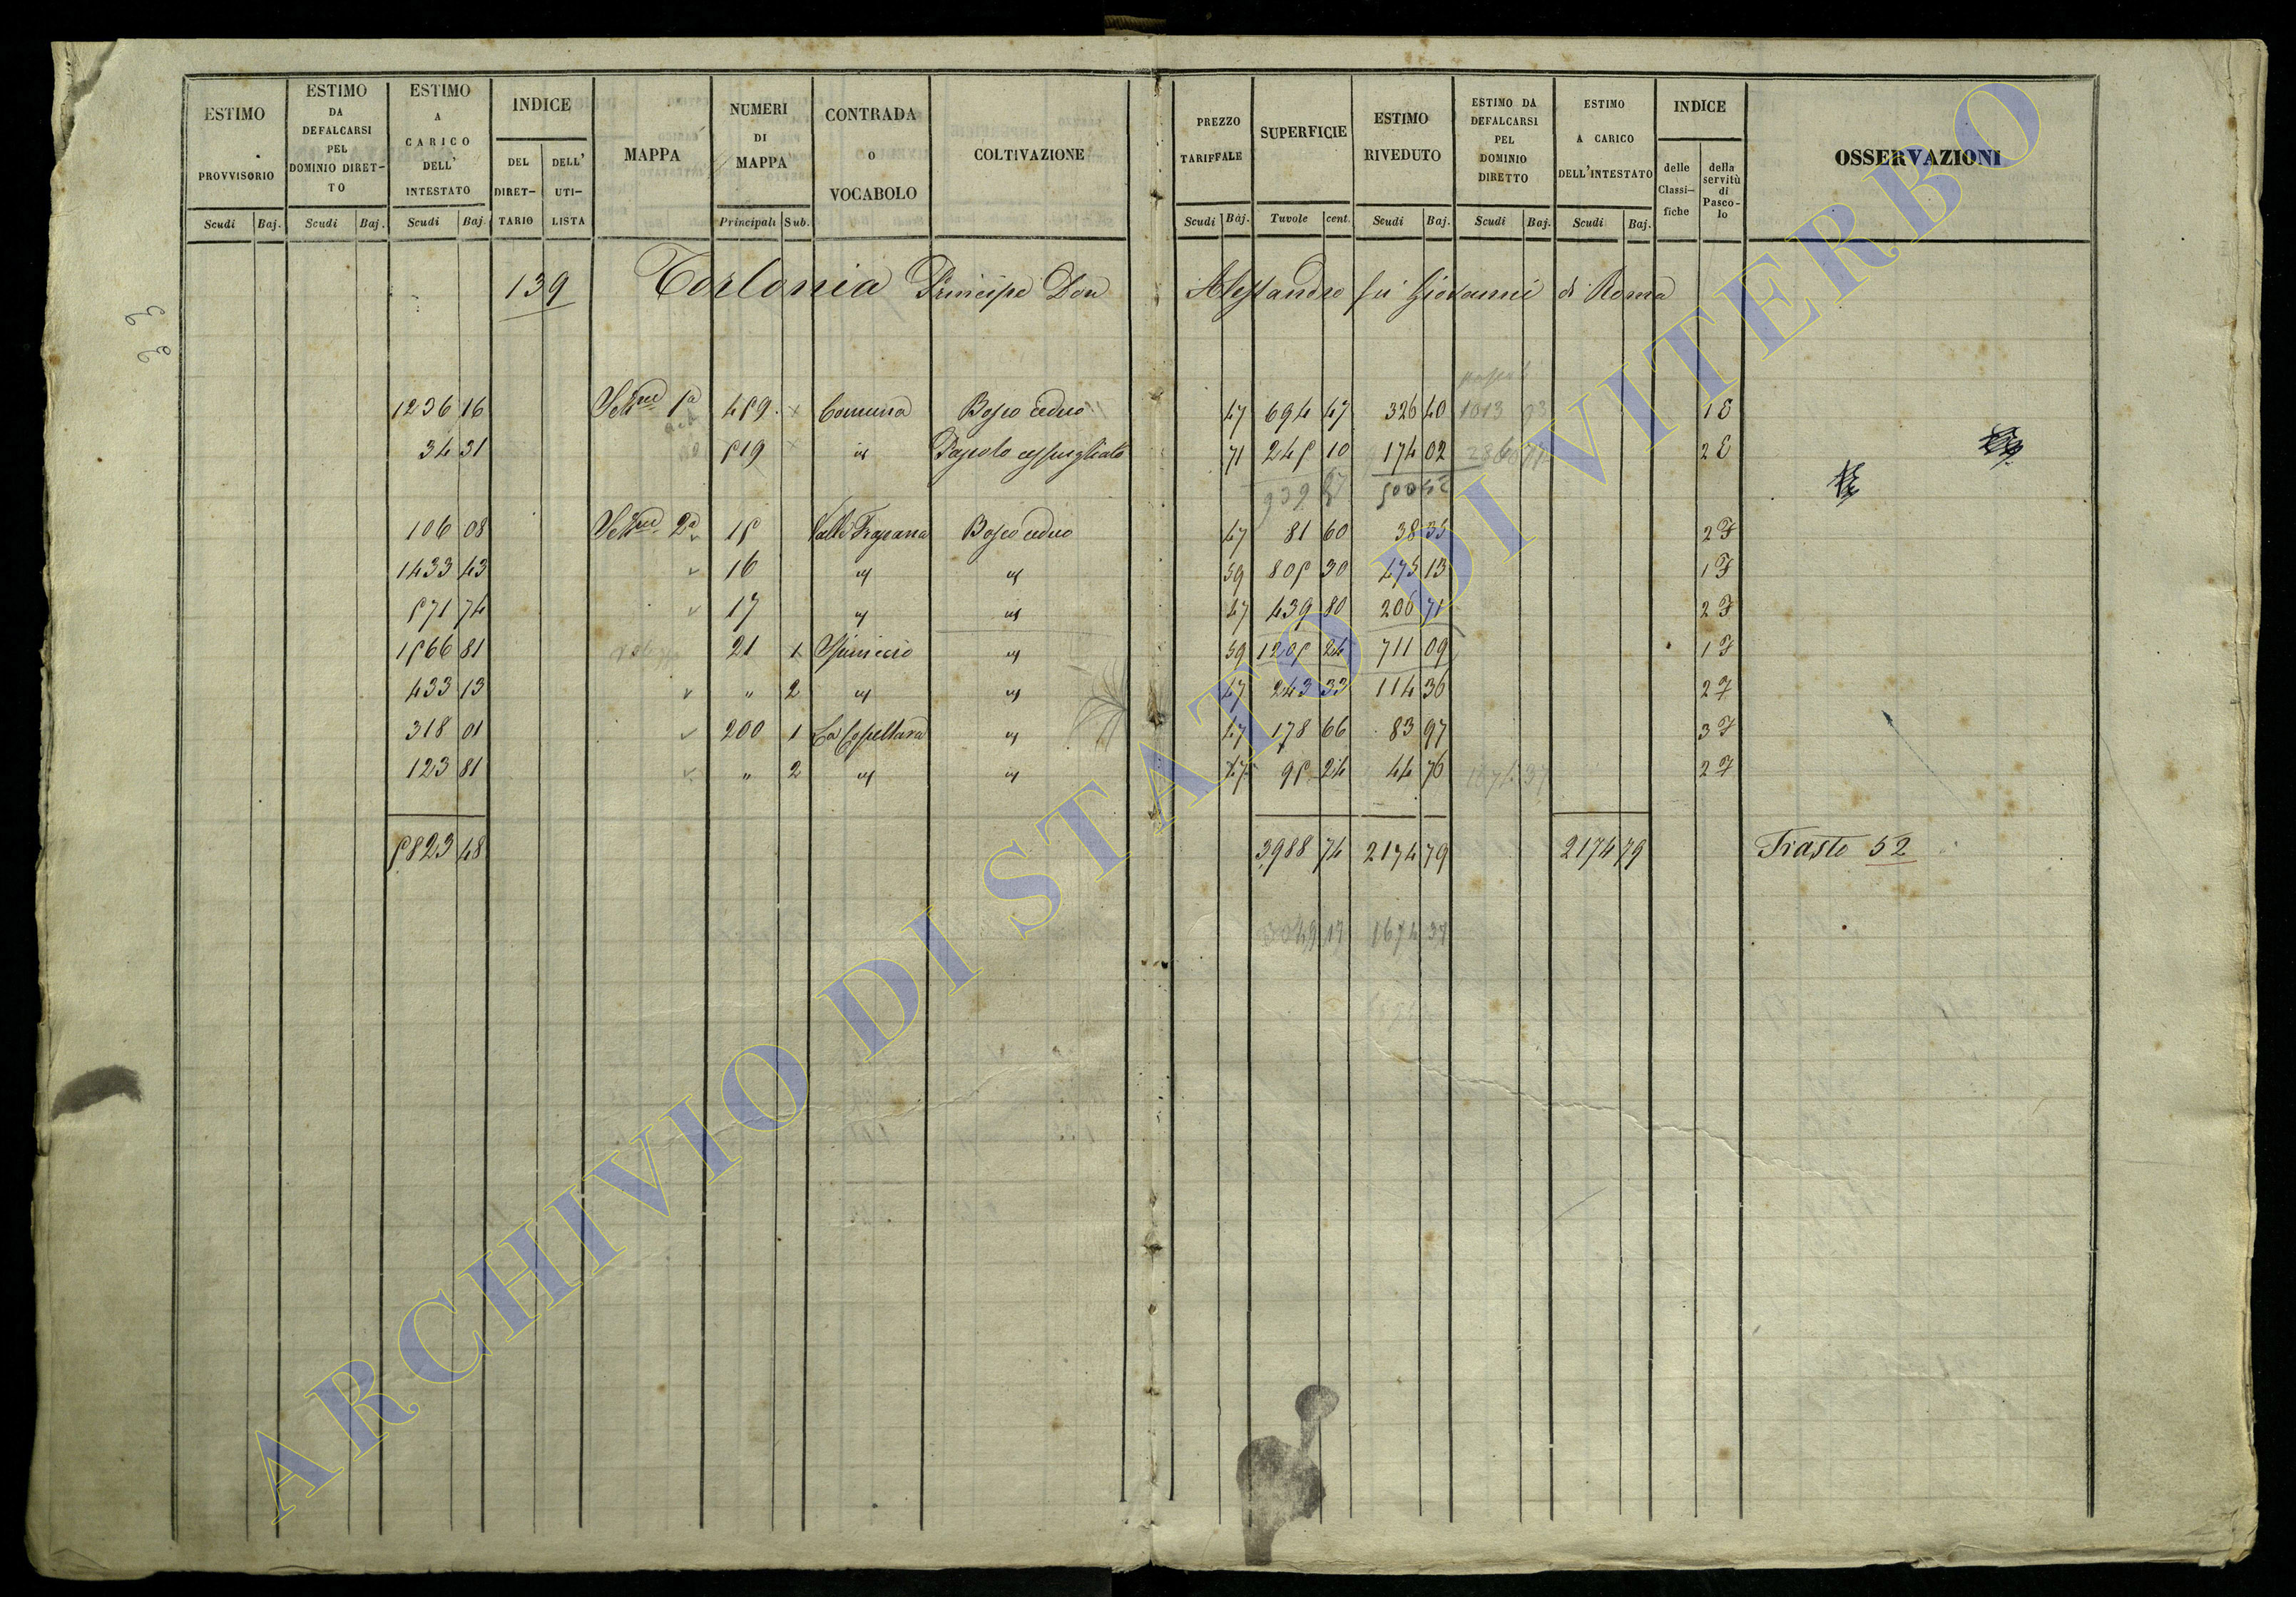 ESTIMO PROVVISORIO Scudi Baj.
ESTIMO DA DEFALCARSI PEL DOMINIO DIRET- TO Scudi Baj.
ESTIMO A CARICO DELL' INTESTATO Scudi Baj.
INDICE DEL DIRET- TARIO DELL' UTI- LISTA
MAPPA
NUMERI DI MAPPA Principali Sub.
CONTRADA O VOCABOLO
COLTIVAZIONE
PREZZO TARIFFALE Scudi Baj.
SUPERFICIE Tavole cent.
ESTIMO RIVEDUTO Scudi Baj.
ESTIMO DA DEFALCARSI PEL DOMINIO DIRETTO Scudi Baj.
ESTIMO A CARICO DELL'INTESTATO Scudi Baj.
INDICE delle Classi- fiche della servitù di Pasco- lo
OSSERVAZIONI
139 Torlonia Principe Don Alessandro fu Giovanni di Roma
1236 16 Sez.ne 1a 459 Comuna Bosco ceduo 47 694 47 326 40 1013 03 1 E
34 31 519 id Pascolo cespugliato 71 245 10 174 02 2 E
939 57 500 42
106 08 Sez.ne 2a 15 Valle Frascana Bosco ceduo 47 81 60 38 35 2 F
1433 43 16 id id 59 805 30 475 13 1 F
571 74 17 id id 47 439 80 206 71 2 F
1566 81 21 1 Spiniccio id 59 1205 24 711 09 1 F
433 13 " 2 id id 47 243 33 114 36 2 F
318 01 200 1 id 47 178 66 83 97 3 F
123 81 " 2 id id 47 95 24 44 76 1674 37 2 F
5823 48 3988 74 2174 79 2174 79 Trasto 52
3049 17 1674 37
ARCHIVIO DI STATO DI VITERBO